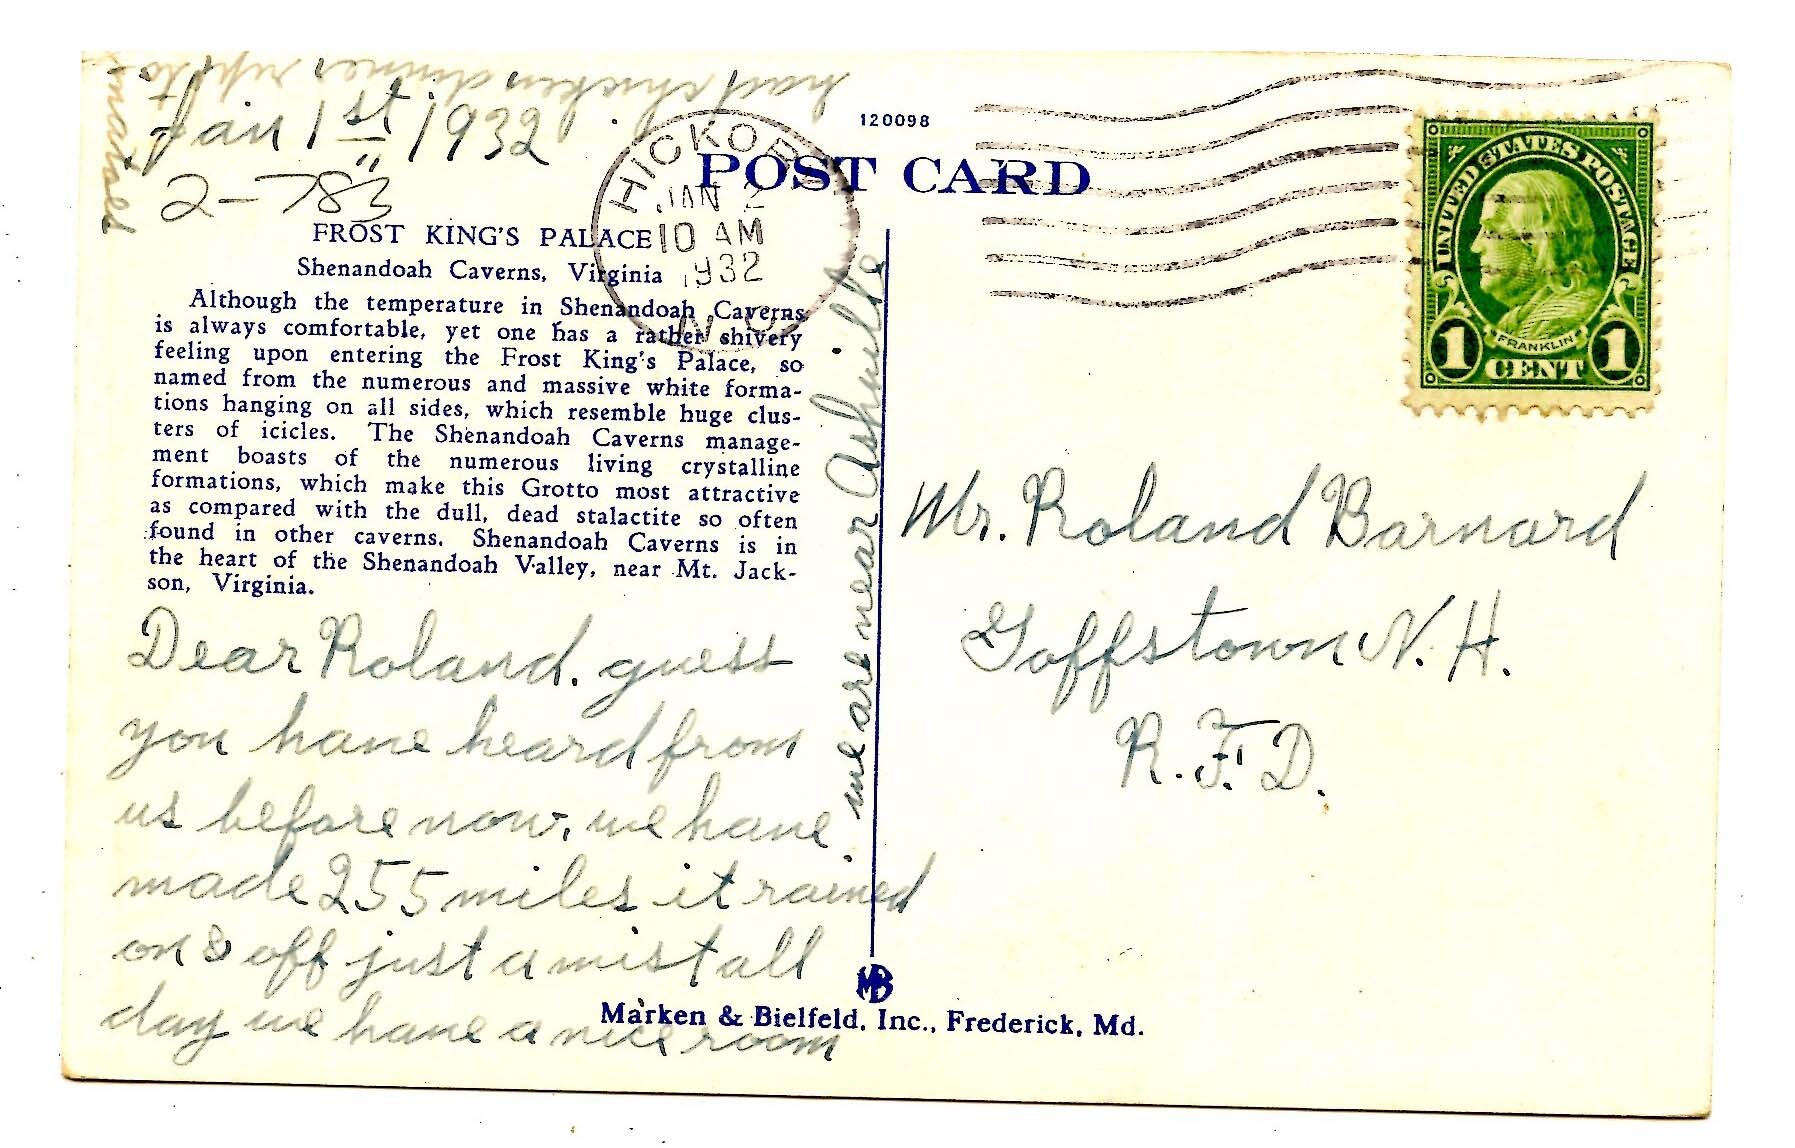 had chicken dinner
Jan 1st 1932
2-783
120098
POST CARD
HICKORY
JAN 2
10 AM
1932
N.C.
UNITED STATES POSTAGE
FRANKLIN
1 CENT 1
FROST KING'S PALACE
Shenandoah Caverns, Virginia
Although the temperature in Shenandoah Caverns
is always comfortable, yet one has a rather shivery
feeling upon entering the Frost King's Palace, so
named from the numerous and massive white forma-
tions hanging on all sides, which resemble huge clus-
ters of icicles. The Shenandoah Caverns manage-
ment boasts of the numerous living crystalline
formations, which make this Grotto most attractive
as compared with the dull, dead stalactite so often
found in other caverns. Shenandoah Caverns is in
the heart of the Shenandoah Valley, near Mt. Jack-
son, Virginia.
Dear Roland. guess
you have heard from
us before now. we have
made 255 miles it rained
on & off just a mist all
day we have a nice room
we are near Ashville
Mr. Roland Barnard
Goffstown N. H.
R. F. D.
MB
Marken & Bielfeld, Inc., Frederick, Md.